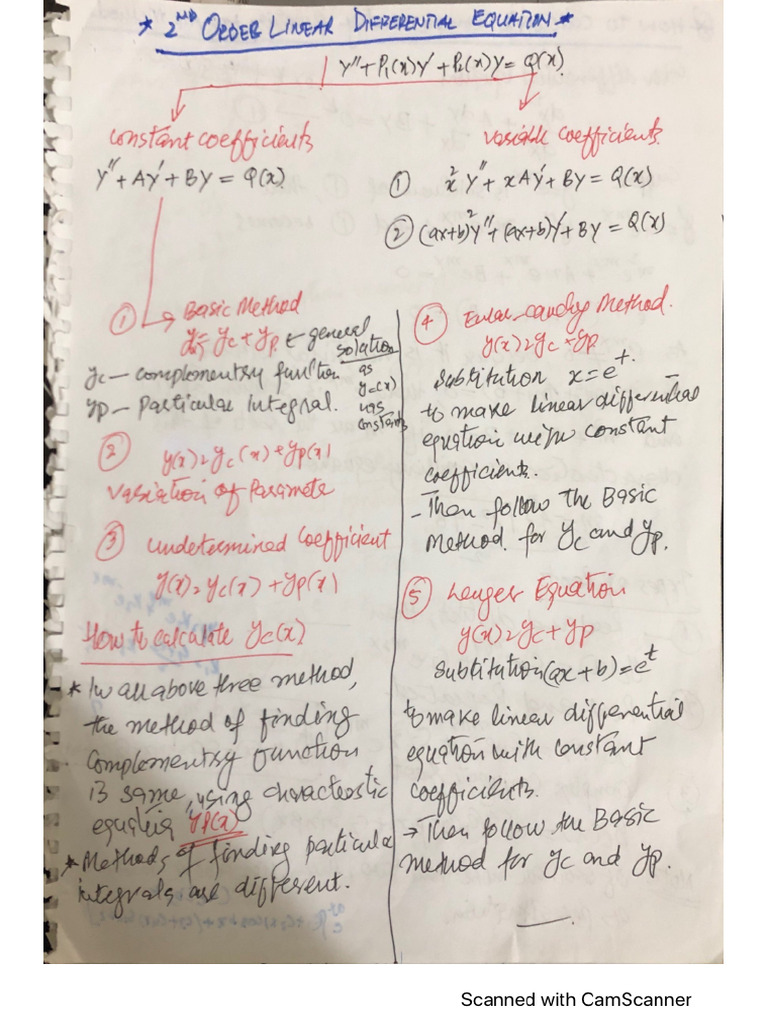 * 2ND ORDER LINEAR DIFFERENTIAL EQUATION *
y'' + P₁(x)y' + P₂(x)y = Q(x)
constant coefficients
y'' + Ay' + By = Q(x)
① Basic Method
y = yc + yp ← general solution
yc — complementary function
as yc(x) has constants
yp — Particular integral.
② y(x) = yc(x) + yp(x)
Variation of Paramete
③ undetermined coefficient
y(x) = yc(x) + yp(x)
How to calculate yc(x)
* In all above three method,
the method of finding
complementry function
is same, using characteostic
equation yp(x)
* Methods of finding particula
integrals are different.
variable coefficients.
① x² y'' + xAy' + By = Q(x)
② (ax+b)²y'' + (ax+b)y' + By = Q(x)
④ Euler-cauchy Method.
y(x) = yc + yp
substitution x = eᵗ.
to make linear differential
equation with constant
coefficients.
- Then follow the Basic
Method. for yc and yp.
⑤ Lenger Equation
y(x) = yc + yp
substitution (ax+b) = eᵗ
to make linear differential
equation with constant
coefficients.
→ Then follow the Basic
method for yc and yp.
Scanned with CamScanner